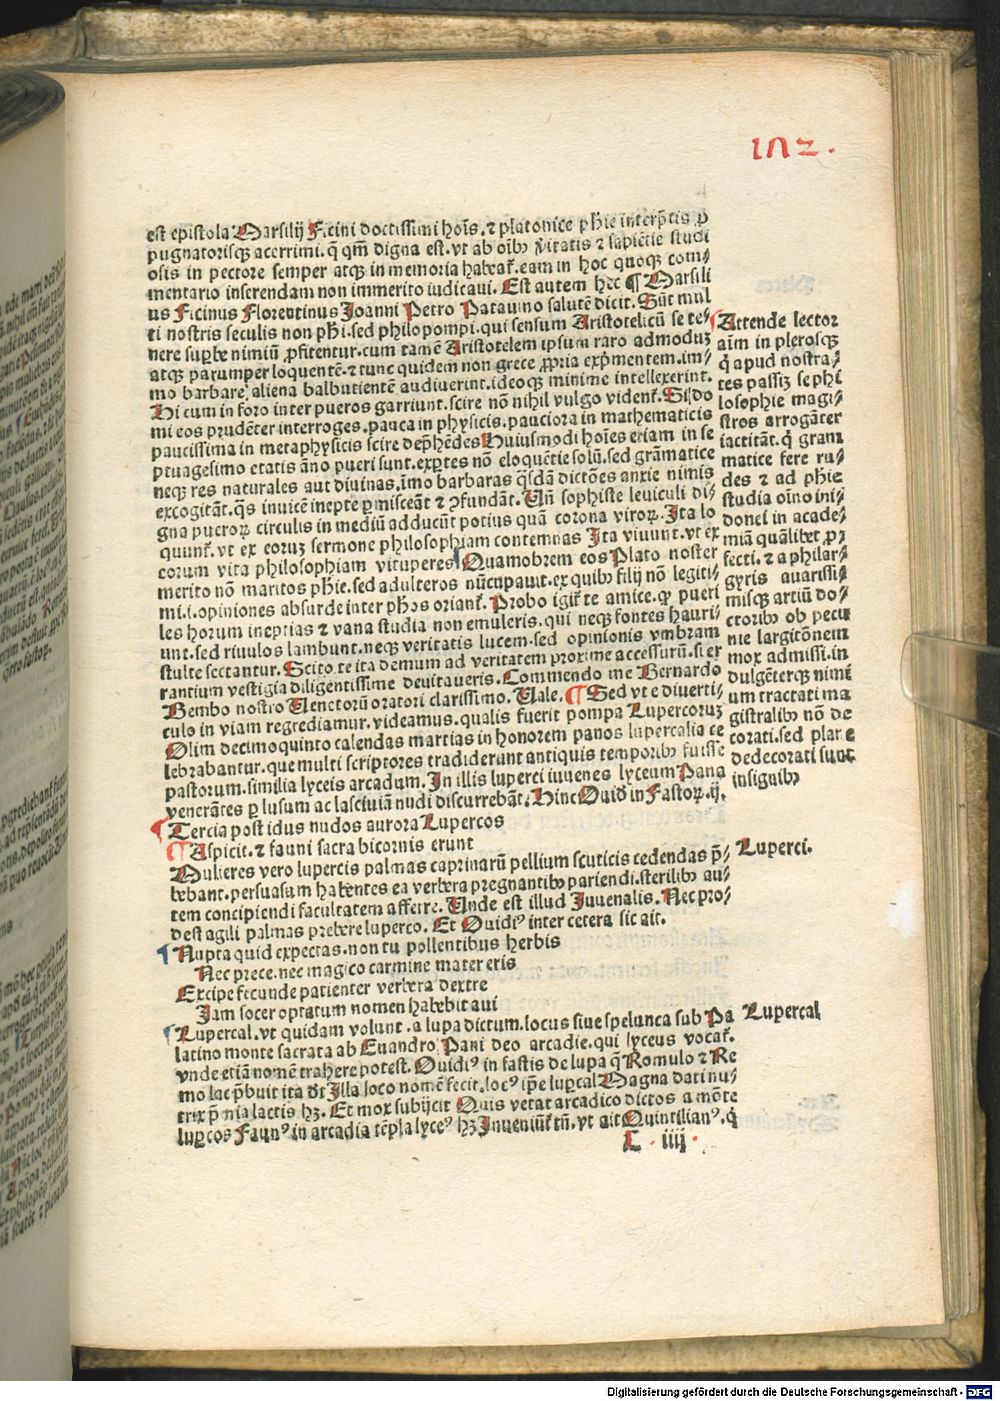 152.
est epistola Marsilij Ficini doctissimi hoīs. ⁊ platonice phīe interp̄tis ꝓ
pugnatorisqꝫ acerrimi. q̄ qm̄ digna est. vt ab oībꝫ v̄itatis ⁊ sapiētie studi
osis in pectore semper atqꝫ in memoria habeat᷑. eam in hoc quoqꝫ com⸗
mentario inserendam non immerito iudicaui. Est autem hec ¶ Marsili
us Ficinus Florentinus Joanni Petro Patauino salutē dicit. Sūt mul
ti nostris seculis non phī. sed philopompi. qui sensum Aristotelicū se te⸗
nere supꝑbe nimiū ꝓfitentur. cum tamē Aristotelem ipsum raro admoduꝫ
atqꝫ parumper loquentē. ⁊ tunc quidem non grece ꝓpria exp̄mentem. im⸗
mo barbare aliena balbutientē audiuerint. ideoqꝫ minime intellexerint.
Hi cum in foro inter pueros garriunt. scire nō nihil vulgo vident᷑. Si do
mi eos prudēter interroges. pauca in physicis. pauciora in mathematicis
paucissima in metaphysicis scire dep̄hēdes Huiusmodi hoīes etiam in se
ptuagesimo etatis āno pueri sunt. exꝑtes nō eloquētie solū. sed grāmatice
neqꝫ res naturales aut diuinas. īmo barbaras q̄sdā dictōes anxie nimis
excogitāt. q̄s inuicē inepte ꝑmisceāt ⁊ ꝯfundāt. Uñ sophiste leuiculi di⸗
gna pueroꝝ circulis in mediū adducūt potius quā corona viroꝝ. Ita lo
quunt᷑. vt ex eoruꝫ sermone philosophiam contemnas Ita viuunt. vt ex
eorum vita philosophiam vituperes ¶ Quamobrem eos Plato noster
merito nō maritos phīe. sed adulteros nūcupauit. ex quibꝫ filij nō legiti⸗
mi. i. opiniones absurde inter phōs oriant᷑. Probo igit᷑ te amice. ꝙ pueri
les horum ineptias ⁊ vana studia non emuleris. qui neqꝫ fontes hauri⸗
unt. sed riuulos lambunt. neqꝫ veritatis lucem. sed opinionis vmbram
stulte sectantur. Scito te ita demum ad veritatem proxime accessurū. si er
rantium vestigia diligentissime deuitaueris. Commendo me Bernardo
Bembo nostro Uenetorū oratori clarissimo. Uale. ¶ Sed vt e diuerti⸗
culo in viam regrediamur. videamus. qualis fuerit pompa Lupercoruꝫ
Olim decimoquinto calendas martias in honorem panos lupercalia ce
lebrabantur. que multi scriptores tradiderunt antiquis temporibꝫ fuisse
pastorum. similia lyceis arcadum. In illis luperci iuuenes lyceum Pana
venerātes ꝑ lusum ac lasciuiā nudi discurrebāt. Hinc Ouid̄ in Fastoꝝ. ij.
¶ Tercia post idus nudos aurora Lupercos
¶ Aspicit. ⁊ fauni sacra bicornis erunt
Mulieres vero lupercis palmas caprinarū pellium scuticis cedendas p̄⸗
bebant. persuasum habentes ea verbera pregnantibꝫ pariendi. sterilibꝫ au⸗
tem concipiendi facultatem afferre. Unde est illud Juuenalis. Nec pro⸗
dest agili palmas prebere luperco. Et Ouidiꝰ inter cetera sic ait.
¶ Nupta quid expectas. non tu pollentibus herbis
Nec prece. nec magico carmine mater eris
Excipe fecunde patienter verbera dextre
Jam socer optatum nomen habebit aui
¶ Lupercal. vt quidam volunt. a lupa dictum. locus siue spelunca sub Pa
latino monte sacrata ab Euandro Pani deo arcadie. qui lyceus vocat᷑.
vnde etiā nomē trahere potest. Ouidiꝰ in fastis de lupa q̄ Romulo ⁊ Re
mo lac p̄buit ita dr̄t Illa loco nomē fecit. locꝰ ip̄e luꝑcal Magna dati nu⸗
trix p̄mia lactis hꝫ. Et mox subijcit Quis vetat arcadico dictos a mōte
luꝑcos Faunꝰ in arcadia tēpla lyceꝰ hꝫ Inueniūt᷑ tn̄. vt ait Quintilianꝰ. q̇
L. iiij.
¶ Attende lector
aīm in plerosqꝫ
q̇ apud nostra⸗
tes passiꝫ se phi
losophie magi⸗
stros arrogāter
iactitāt. q̇ gram
matice fere ru⸗
des ⁊ ad phīe
studia oīno ini⸗
donei in acade⸗
miā quālibet ꝓ⸗
fecti. ⁊ a philar⸗
gyris auarissi⸗
misqꝫ artiū do⸗
ctoribꝫ ob pecu
nie largitōnem
mox admissi. in
dulgēterqꝫ nimi
um tractati ma
gistralibꝫ nō de
corati. sed plane
dedecorati sunt
insignibꝫ
Luperci.
Lupercal
Digitalisierung gefördert durch die Deutsche Forschungsgemeinschaft - DFG